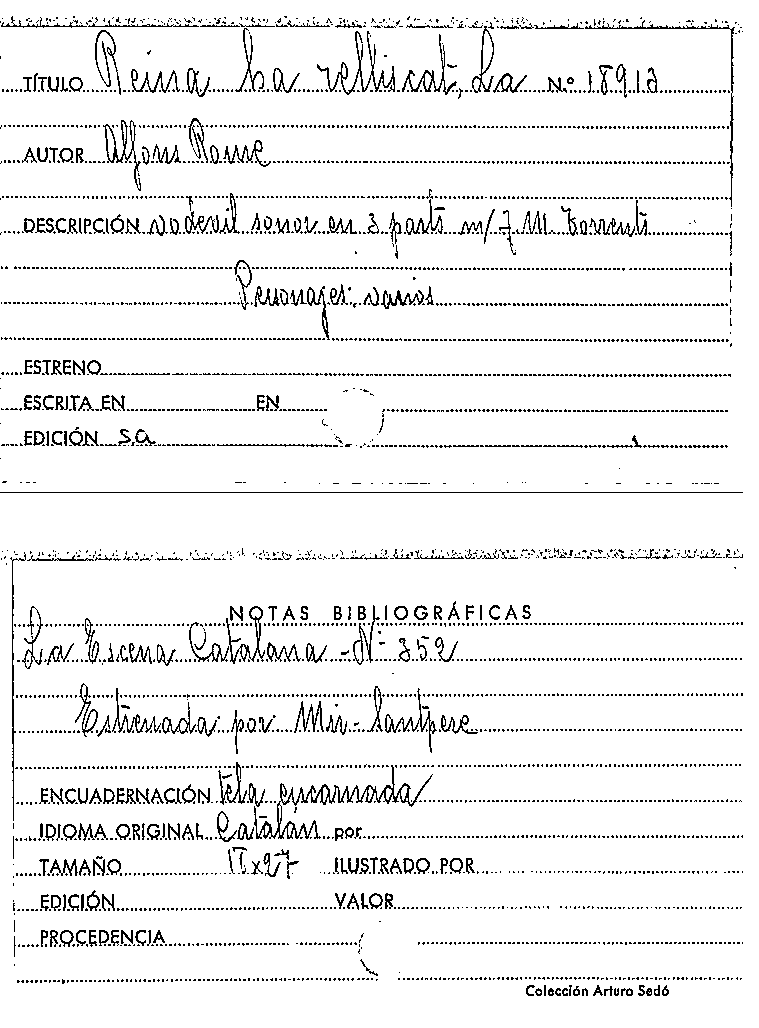 TÍTULO Reina ha relliscat, La N.º 18913
AUTOR Alfons Roure
DESCRIPCIÓN vodevil sonor en 3 parts m/ J. M. Torrents
Personages: varios
ESTRENO
ESCRITA EN EN
EDICIÓN s.a.
NOTAS BIBLIOGRÁFICAS
La Escena Catalana - Nº 352
Estrenada por Mir - Santpere
ENCUADERNACIÓN tela encarnada
IDIOMA ORIGINAL Catalán por
TAMAÑO 17x27 ILUSTRADO POR
EDICIÓN VALOR
PROCEDENCIA
Colección Arturo Sedó